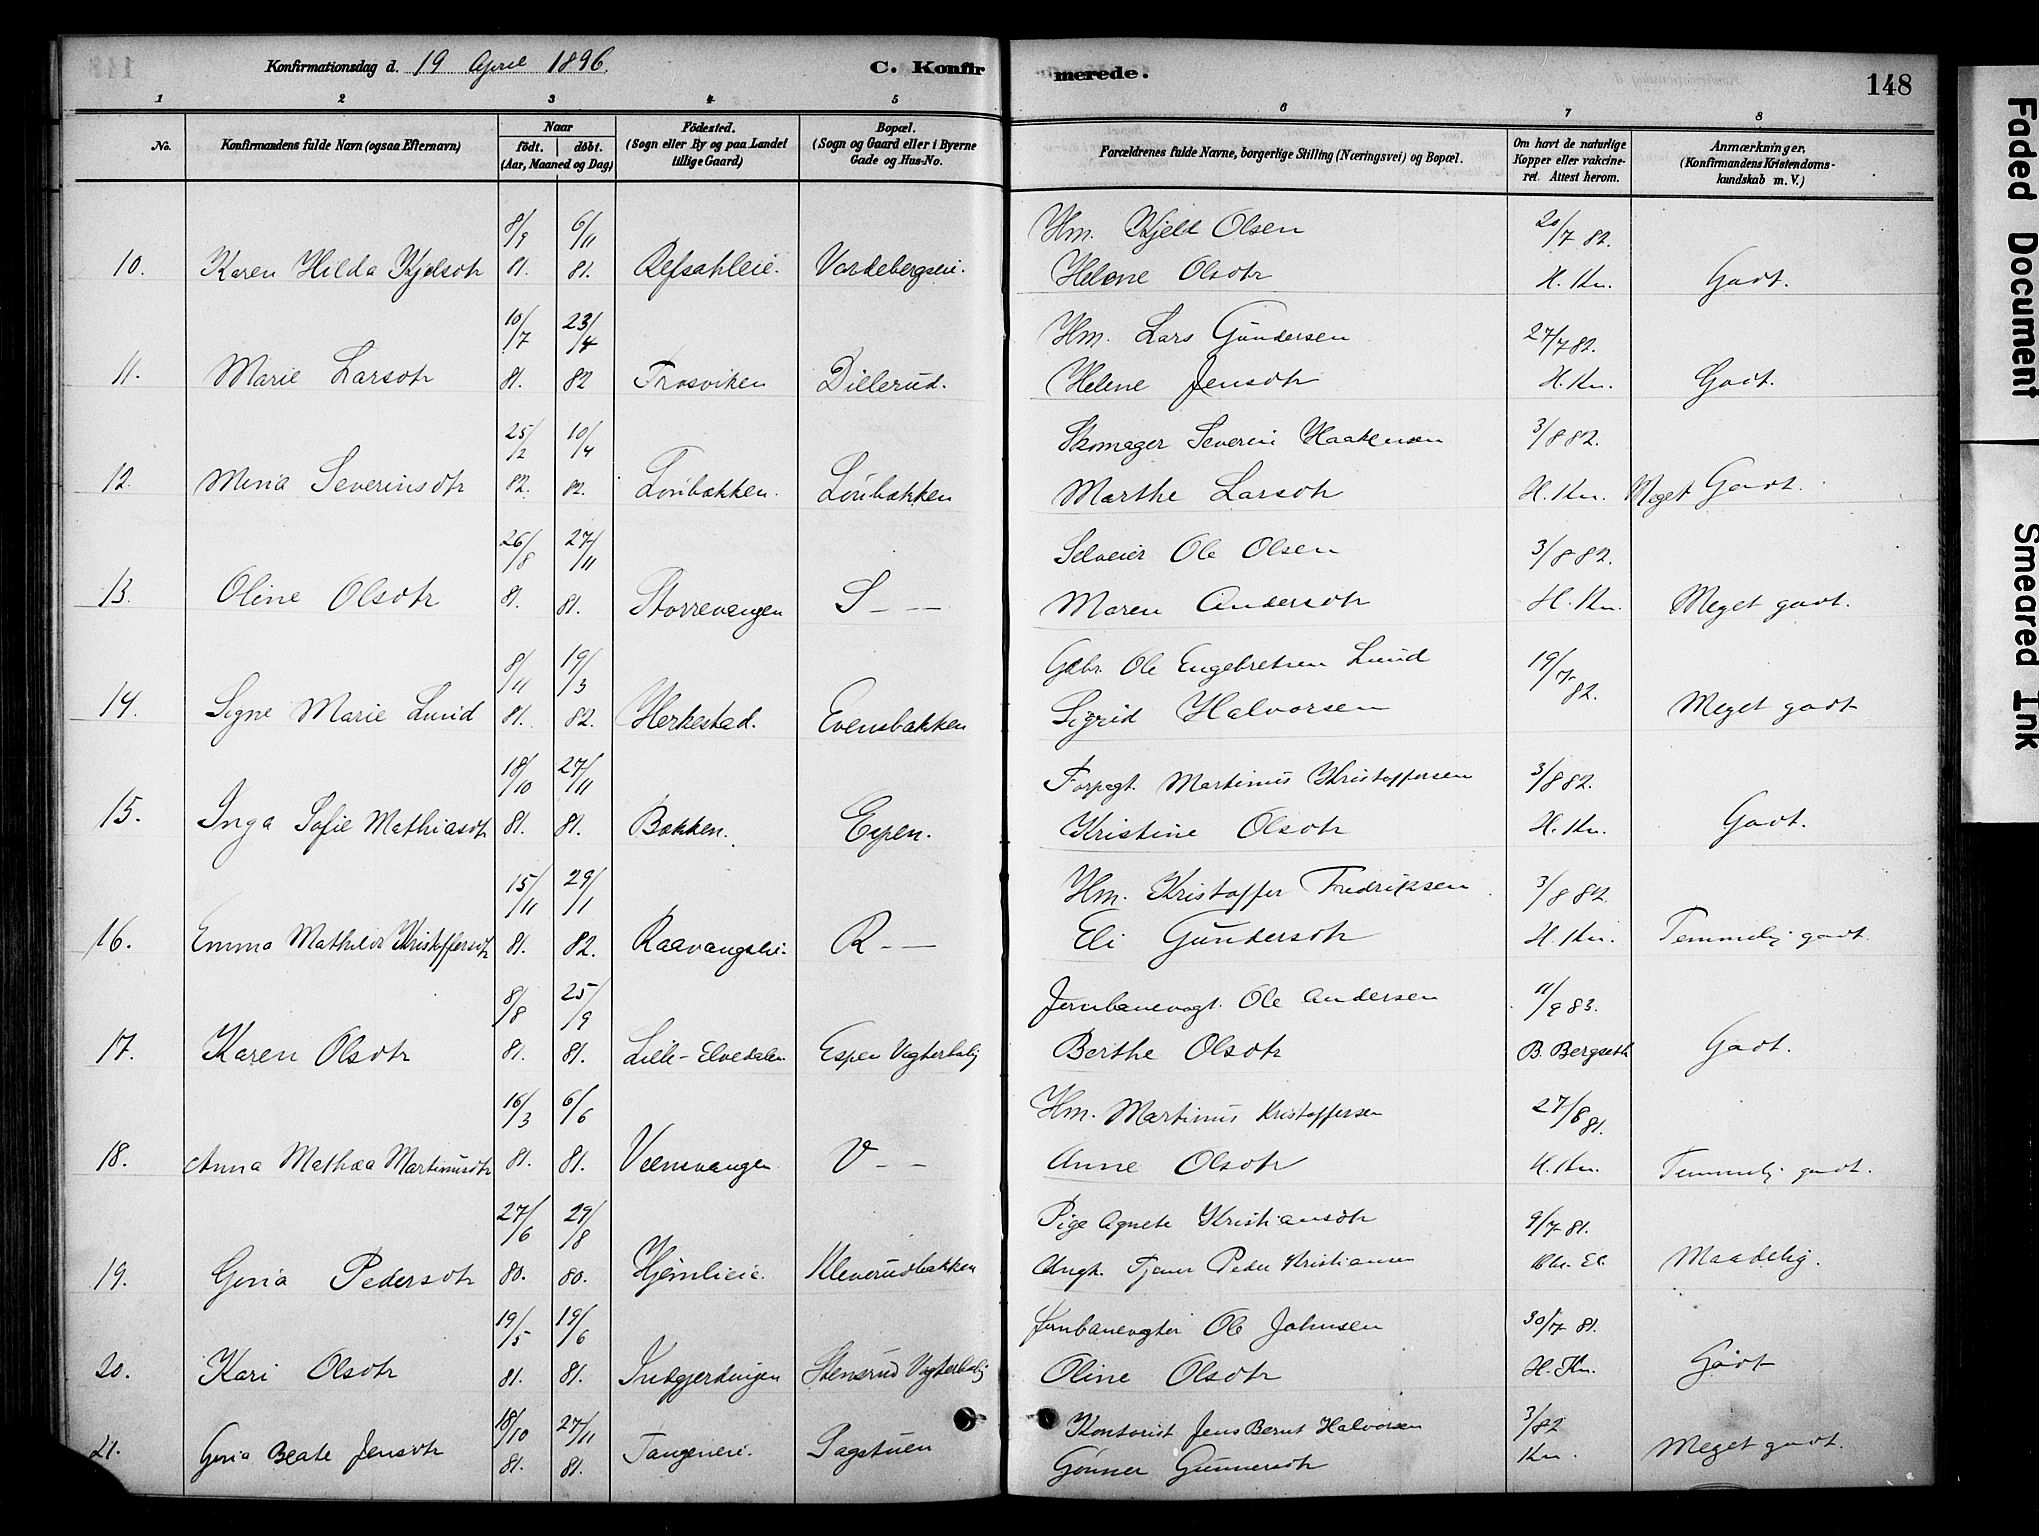 Konfirmationsdag d. 19 April 1896.
C. Konfirmerede.
148
1 2 3 4 5 6 7 8
No.
Konfirmandens fulde Navn (ogsaa Efternavn)
Naar
födt. döbt.
(Aar, Maaned og Dag)
Födested.
(Sogn eller By og paa Landet
tillige Gaard)
Bopæl.
(Sogn og Gaard eller i Byerne
Gade og Hus-No.
Forældrenes fulde Navne, borgerlige Stilling (Næringsvei) og Bopæl.
Om havt de naturlige
Kopper eller vakcine-
ret. Attest herom.
Anmærkninger,
(Konfirmandens Kristendoms-
kundskab m. V.)
8/9 6/11 Hm. Kjeld Olsen 20/7 82.
10. Karen Hilda Kjelsdtr 81. 81. Refsahleie. Vardebergseie. Helene Olsdtr H. Kn. Godt.
10/7 23/4 Hm. Lars Gundersen 27/7 82.
11. Marie Larsdtr 81. 82 Trosviken Dillerud. Helene Jensdtr H. Kn. Godt.
25/2 10/4 Skomager Severin Haakensen 3/8 82.
12. Mina Severinsdtr 82. 82. Lönbækken. Lönbækken Marthe Larsdtr H. Kn. Meget Godt.
26/8 27/11 Selveier Ole Olsen 3/8 82.
13. Oline Olsdtr 81. 81. Storrevangen S – — Maren Andersdtr H. Kn. Meget godt.
8/11 19/3 Gbr. Ole Engebretsen Lund 19/7 82.
14. Signe Marie Lund 81. 82. Herkestad. Evensbakken Sigrid Halvorsen Meget godt
18/10 27/11 Forpagt. Martinus Kristoffersen 3/8 82.
15. Inga Sofie Mathiasdtr 81. 81. Bakken. Espen. Kristine Olsdtr H. Kn. Godt.
15/11 29/1 Hm. Kristoffer Fredriksen 3/8 82.
16. Emma Mathilde Kristoffersdtr 81. 82. Raavangseie. R – — Eli Gundersdtr H. Kn. Temmelig godt.
8/8 25/9 Jernbanevogt. Ole Andersen 11/9 83.
17. Karen Olsdtr 81. 81. Lille-Elvedalen Espen Vogterbolig Berthe Olsdtr B. Bergseth Godt.
16/3 6/6 Hm. Martinus Kristoffersen 27/8 81.
18. Anna Mathea Martinusdtr 81. 81. Veensvangen V – – Anne Olsdtr H. Kn. Temmelig godt.
27/6 29/8 Pige Agnete Kristiansdtr 9/7 81.
19. Gina Pedersdtr 80. 80. Hjemlieie. Kleverudbakken Ungk. Tjener Peder Kristiansen Maadelig.
19/5 19/6 Jernbanevogter Ole Johnsen 30/7 81.
20. Kari Olsdtr 81. 81. Indgjerdingen Stensrud Vogterbolig Oline Olsdtr H. Kn. Godt
18/10 27/11 Kontorist Jens Bernt Halvorsen 3/82
21. Gina Beate Jensdtr 81. 81. Tangeneie. Sagstuen Gönner Gunnersdtr Kn. Meget godt.
Faded Document
Smeared Ink